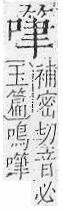 嗶
補密切音必
玉篇鳴嗶